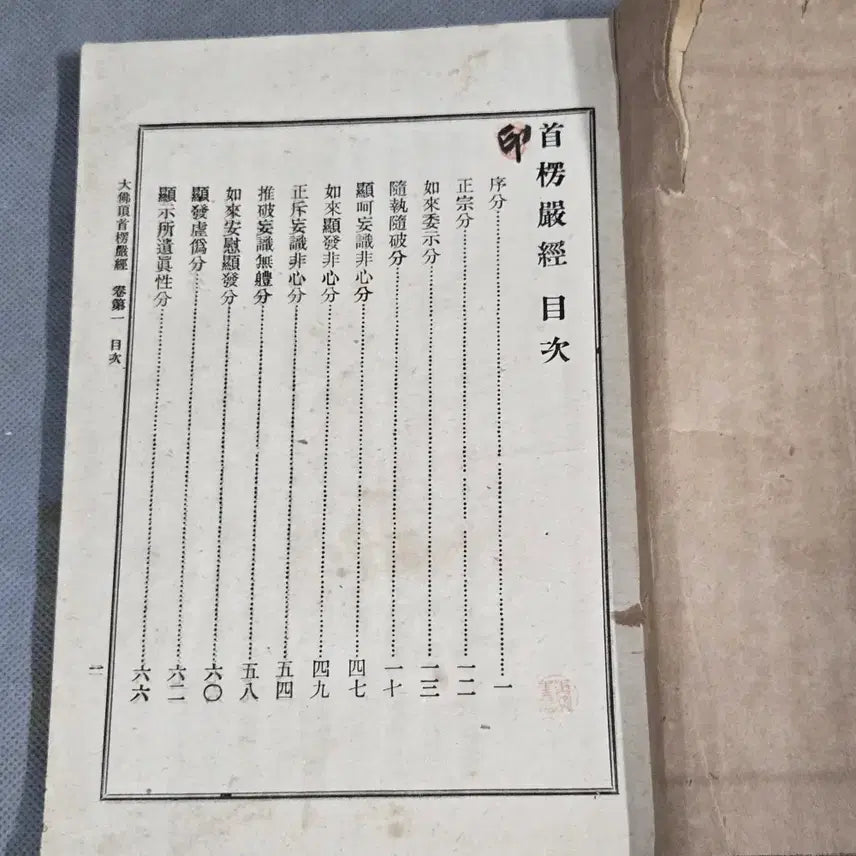 首楞嚴經 目次
印
序分……一
正宗分……一二
如來委示分……一三
隨執隨破分……一十
顯呵妄識非心分……四七
如來顯發非心分……四九
正斥妄識非心分……五四
推破妄識無軆分……五八
如來安慰顯發分……六〇
顯發虛僞分……六二
顯示所遺眞性分……六六
大佛頂首楞嚴經 卷第一 目次
二